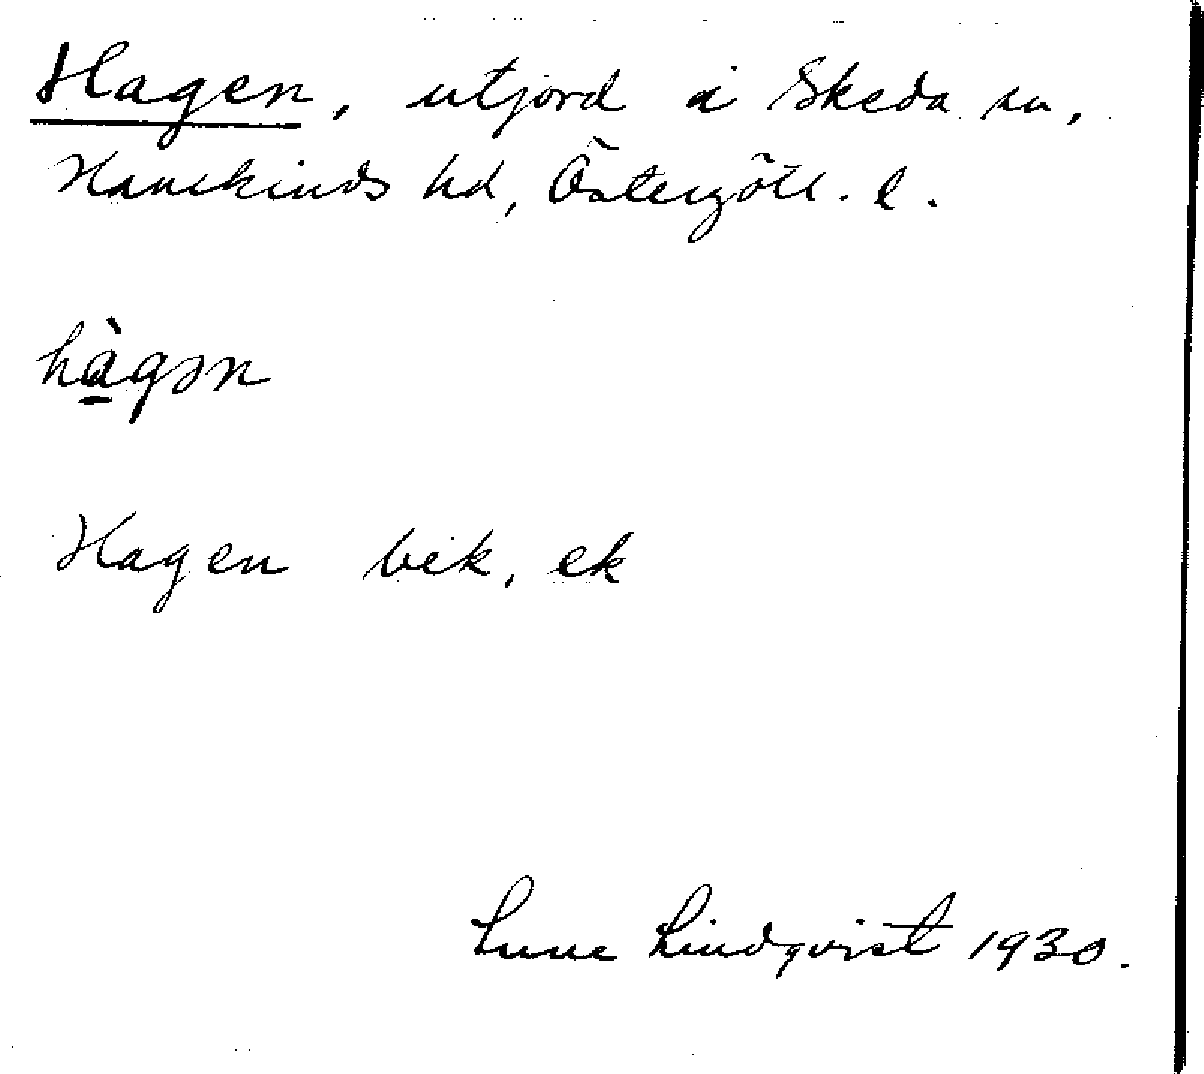 Hagen, utjord i Skeda sn,
Hanekinds hd, Östergötl. l.
hàgən
Hagen bek, ek
Sune Lindqvist 1930.